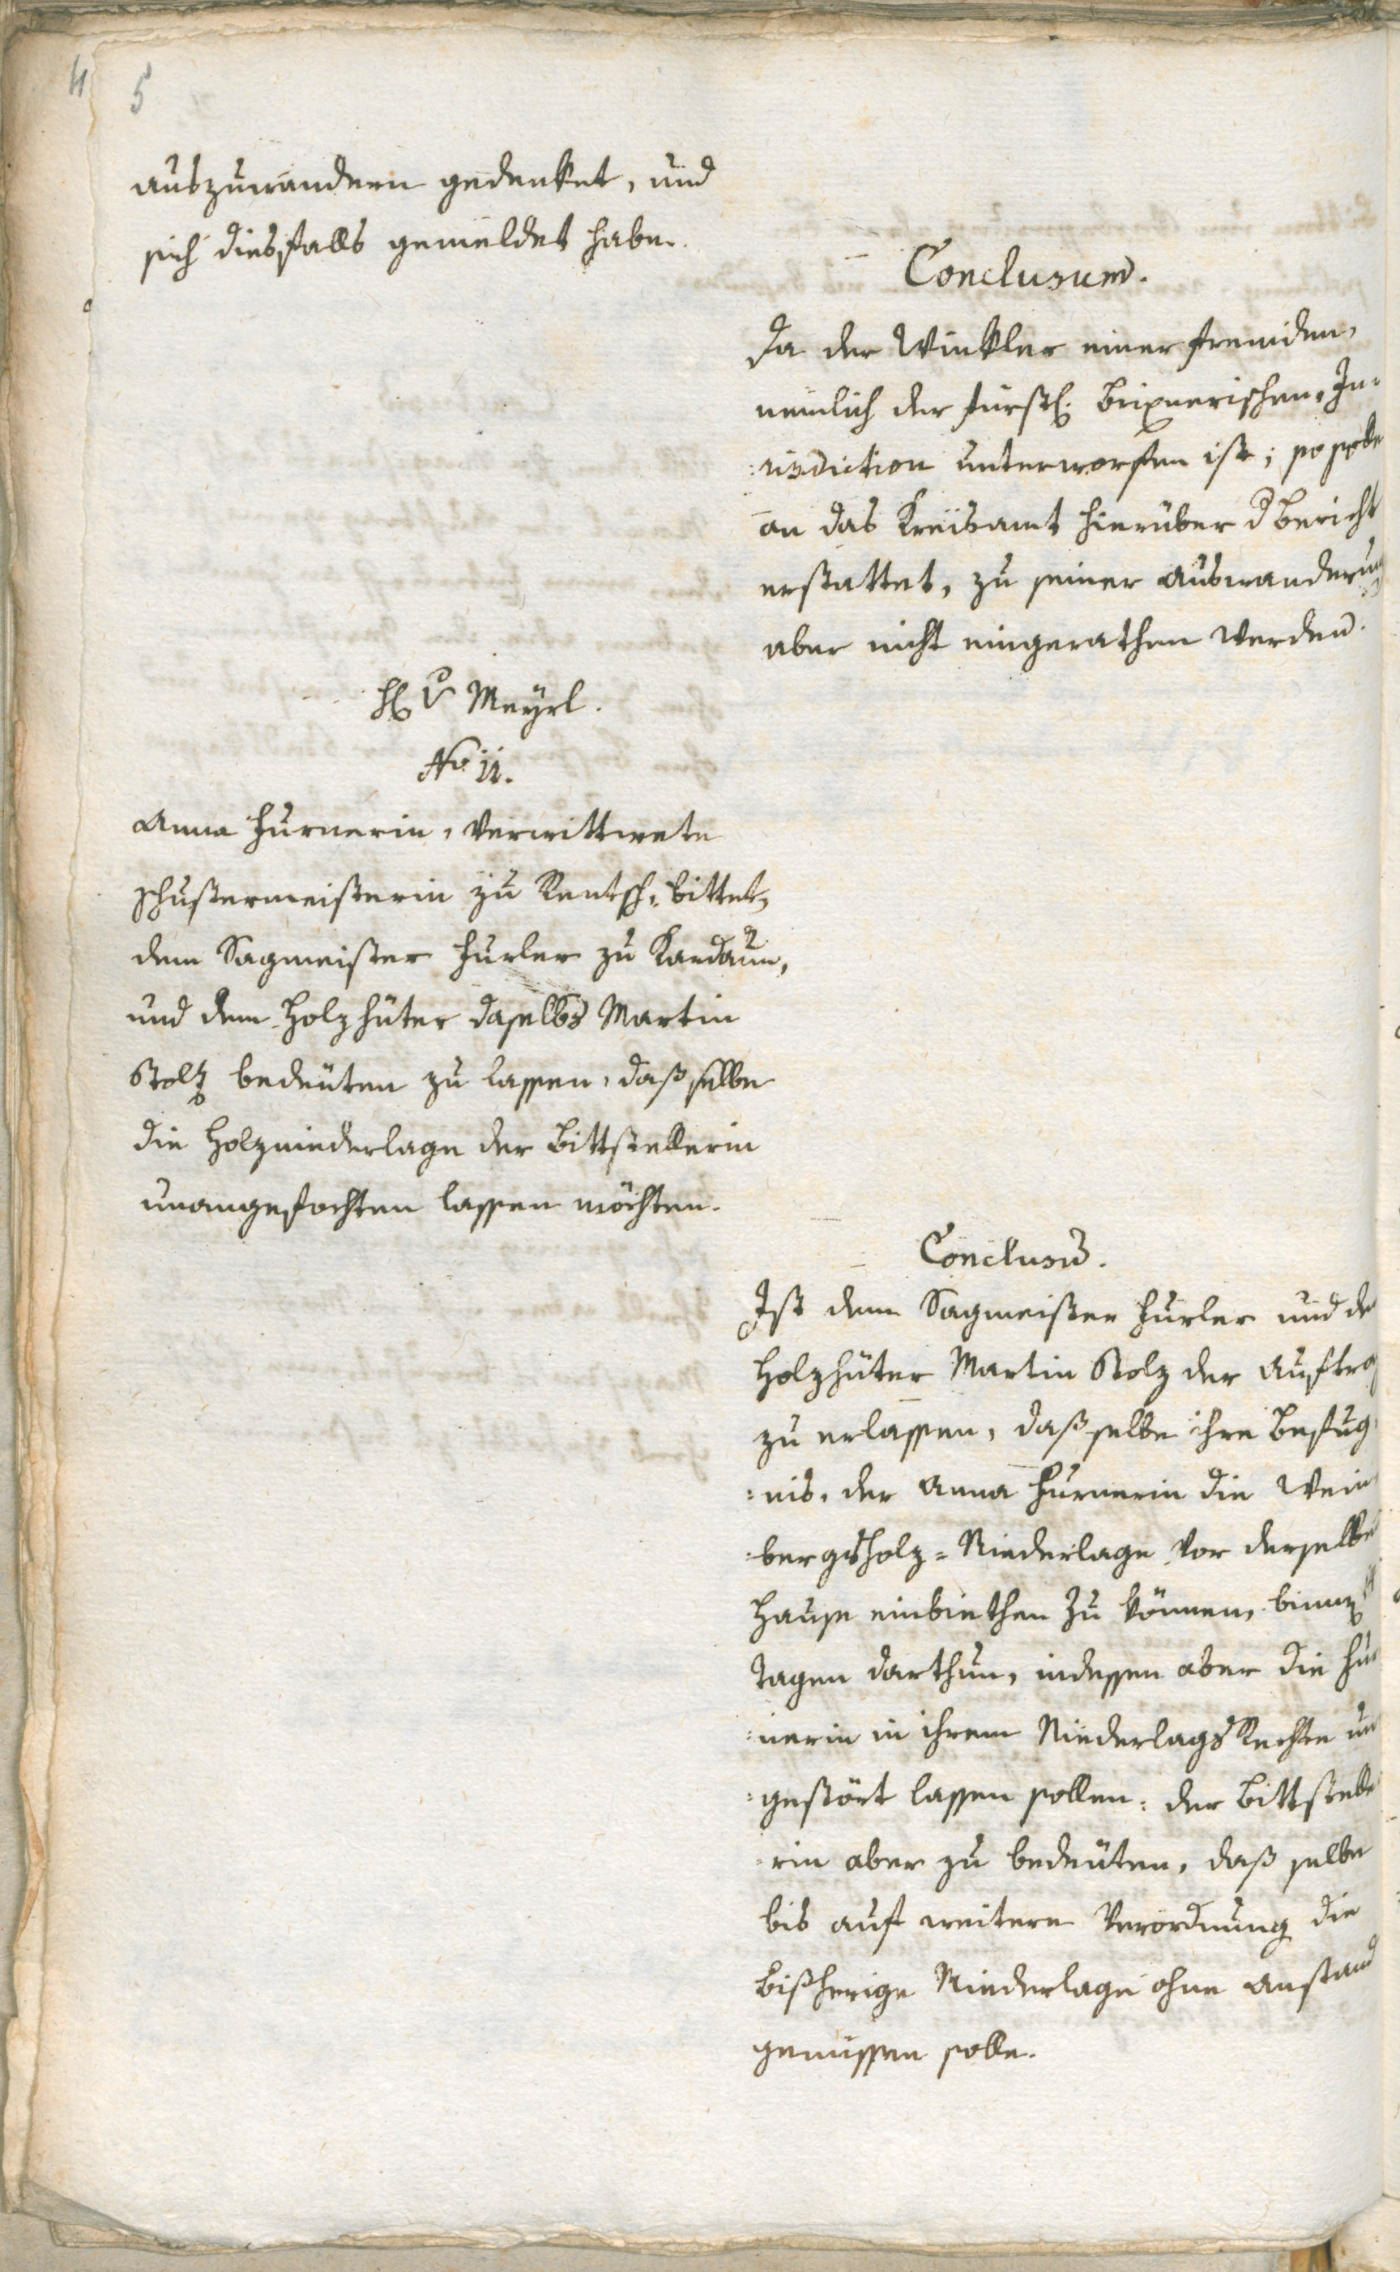 5
auszuwandern gedenket, und
sich diesfalls gemeldet habe.
Conclusum.
Da der Winkler einer fremden,
nemlich der fürstl. brixnerischen Ju-
:risdiction unterworfen ist; so solle
an das Kreisamt hierüber d Bericht
erstattet, zu seiner Auswanderung
aber nicht eingerathen werden.
H v Meyrl.
No 11.
Anna Hurnerin, verwittwete
Schustermeisterin zu Rentsch, bittet,
dem Sagmeister Hurler zu Kardaun,
und dem Holzhüter daselbs Martin
Stolz bedeuten zu lassen, daß selbe
die Holzniederlage der Bittstellerin
unangefochten lassen möchten.
Conclusum.
Ist dem Sagmeister Hurler und de
Holzhüter Martin Stolz der Auftrag
zu erlassen, daß selbe ihre Befug
:nis, der Anna Hurnerin die Wein
:bergsholz-Niederlage vor derselben
Hause einbiethen zu können, binnen
Tagen darthun, indessen aber die Hur
:nerin in ihrem Niederlags Rechte un
:gestört lassen sollen: der Bittstelle
:rin aber zu bedeuten, daß selbe
bis auf weitere Verordnung die
bißherige Niederlage ohne Anstand
genüssen solle.